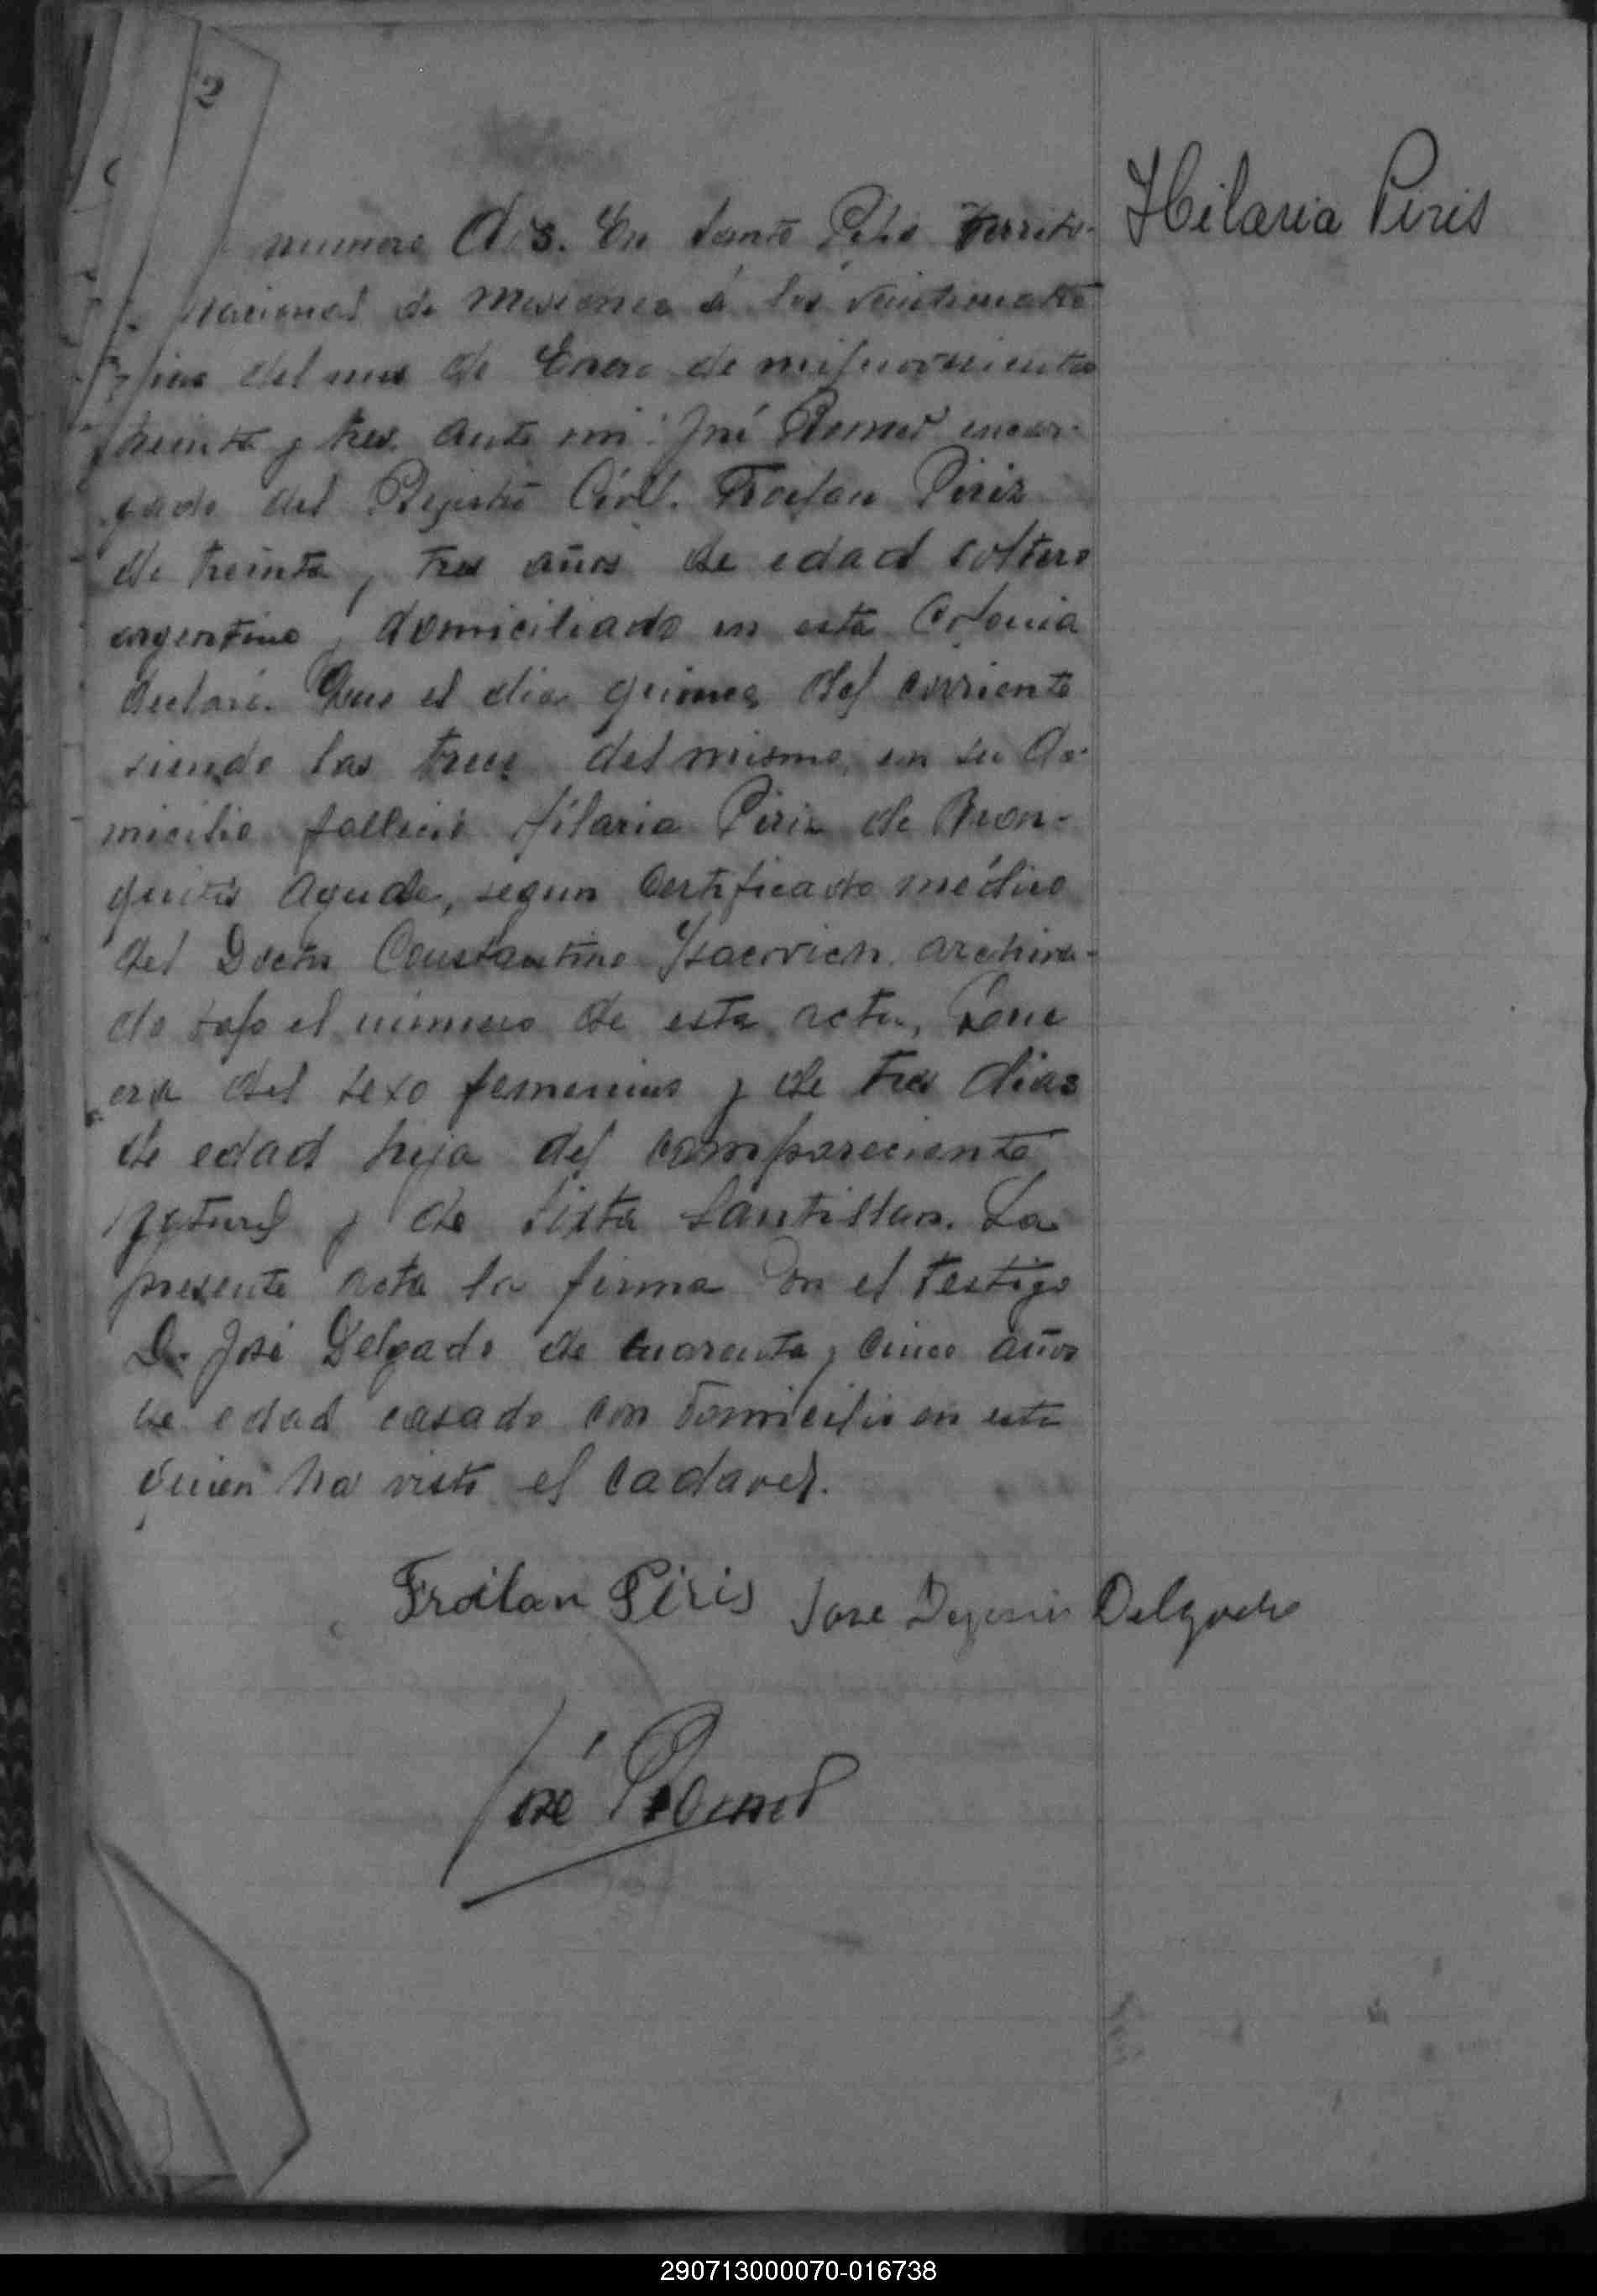 2
Hilaria Piris
numero Dos. En Santo Pipó Territo-
nacional de Misiones á los veinticuatro
dias del mes de Enero de mil novecientos
treinta y tres. Ante mi: José encar-
gado del Registro Civil. Froilan Piriz
de treinta y tres años de edad soltero
argentino y domiciliado en esta Colonia
declaró. Que el dia quince del corriente
siendo las trece del mismo, en su do-
micilio falleció Hilaria Piriz de Bron-
quitis Aguda, segun Certificado médico
del Doctor Constantino archiva-
do bajo el número de esta acta, Que
era del sexo femenino y de tres dias
de edad hija del compareciente
natural y de Sixta Santillan. La
presente acta la firma con el testigo
D. José Delgado de cuarenta y cinco años
de edad casado con domicilio en esta
quien ha visto el cadaver.
Froilan Piris Jose Delgado
José
290713000070-016738